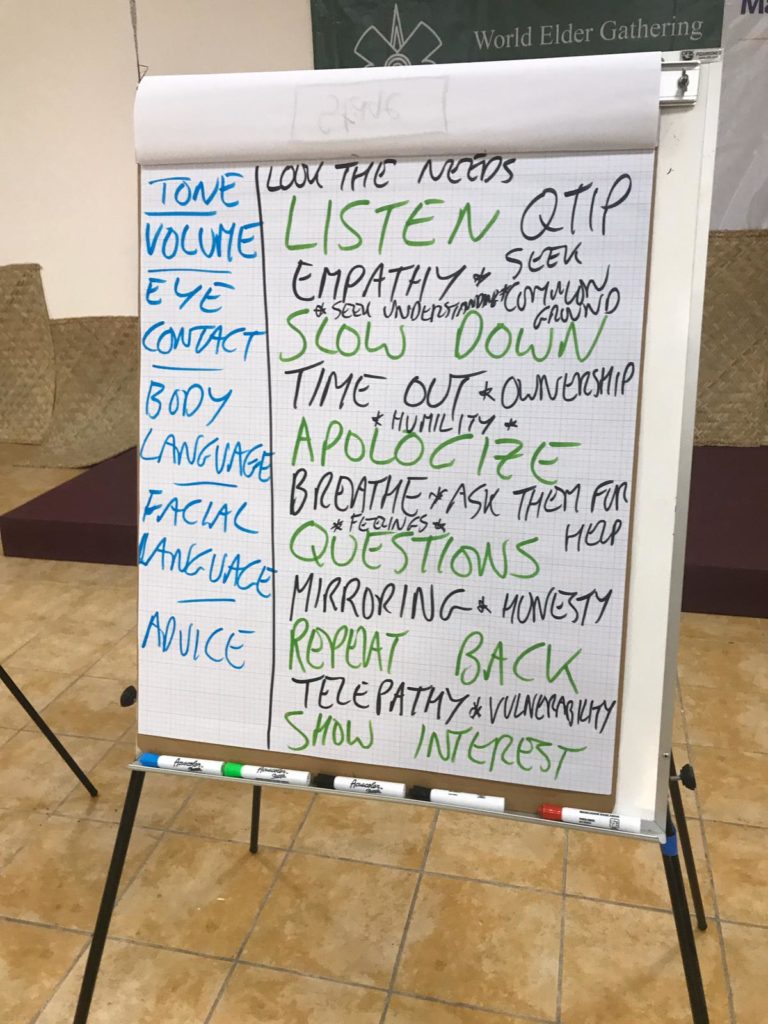 World Elder Gathering
Ma
TONE
VOLUME
EYE
CONTACT
BODY
LANGUAGE
FACIAL
LANGUAGE
ADVICE
LOOK THE NEEDS
LISTEN QTIP
EMPATHY * SEEK
* SEEK UNDERSTANDING * COMMON
GROUND
SLOW DOWN
TIME OUT * OWNERSHIP
* HUMILITY *
APOLOGIZE
BREATHE * ASK THEM FOR
HELP
* FEELINGS *
QUESTIONS
MIRRORING * HONESTY
REPEAT BACK
TELEPATHY * VULNERABILITY
SHOW INTEREST